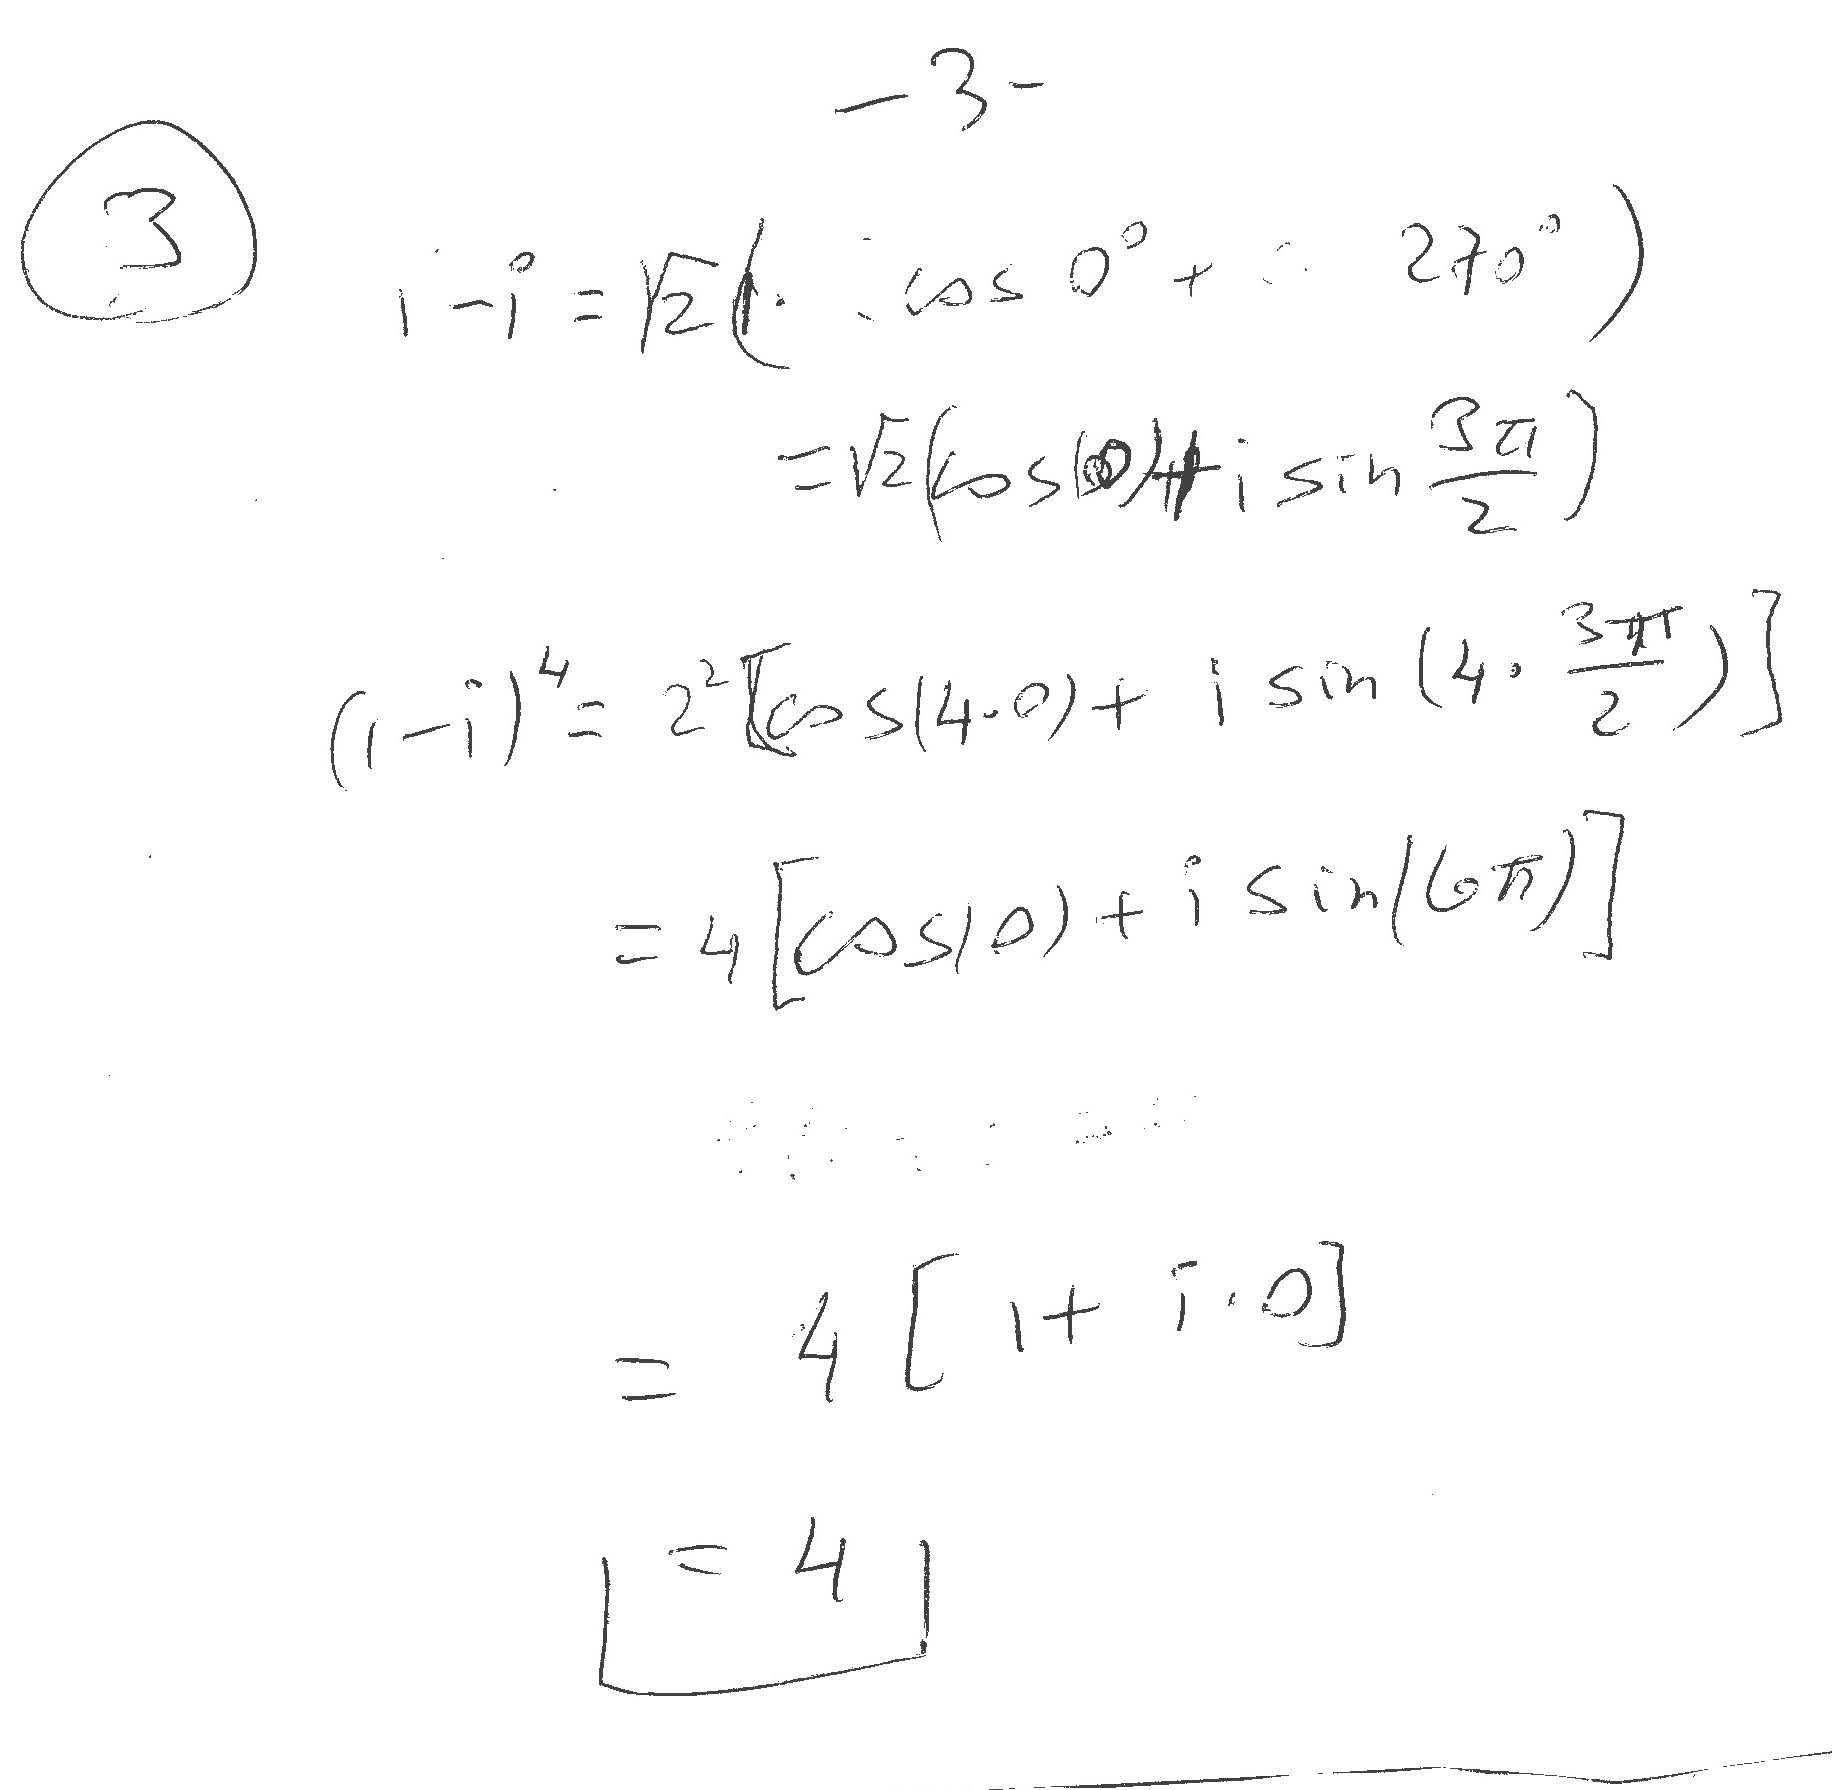 -3-
3
1-i = √2( cos 0° + 270°)
= √2(cos(0) + i sin 3π/2)
(1-i)^4 = 2^2 [cos(4·0) + i sin(4· 3π/2)]
= 4 [cos(0) + i sin(6π)]
= 4 [1 + i·0]
= 4